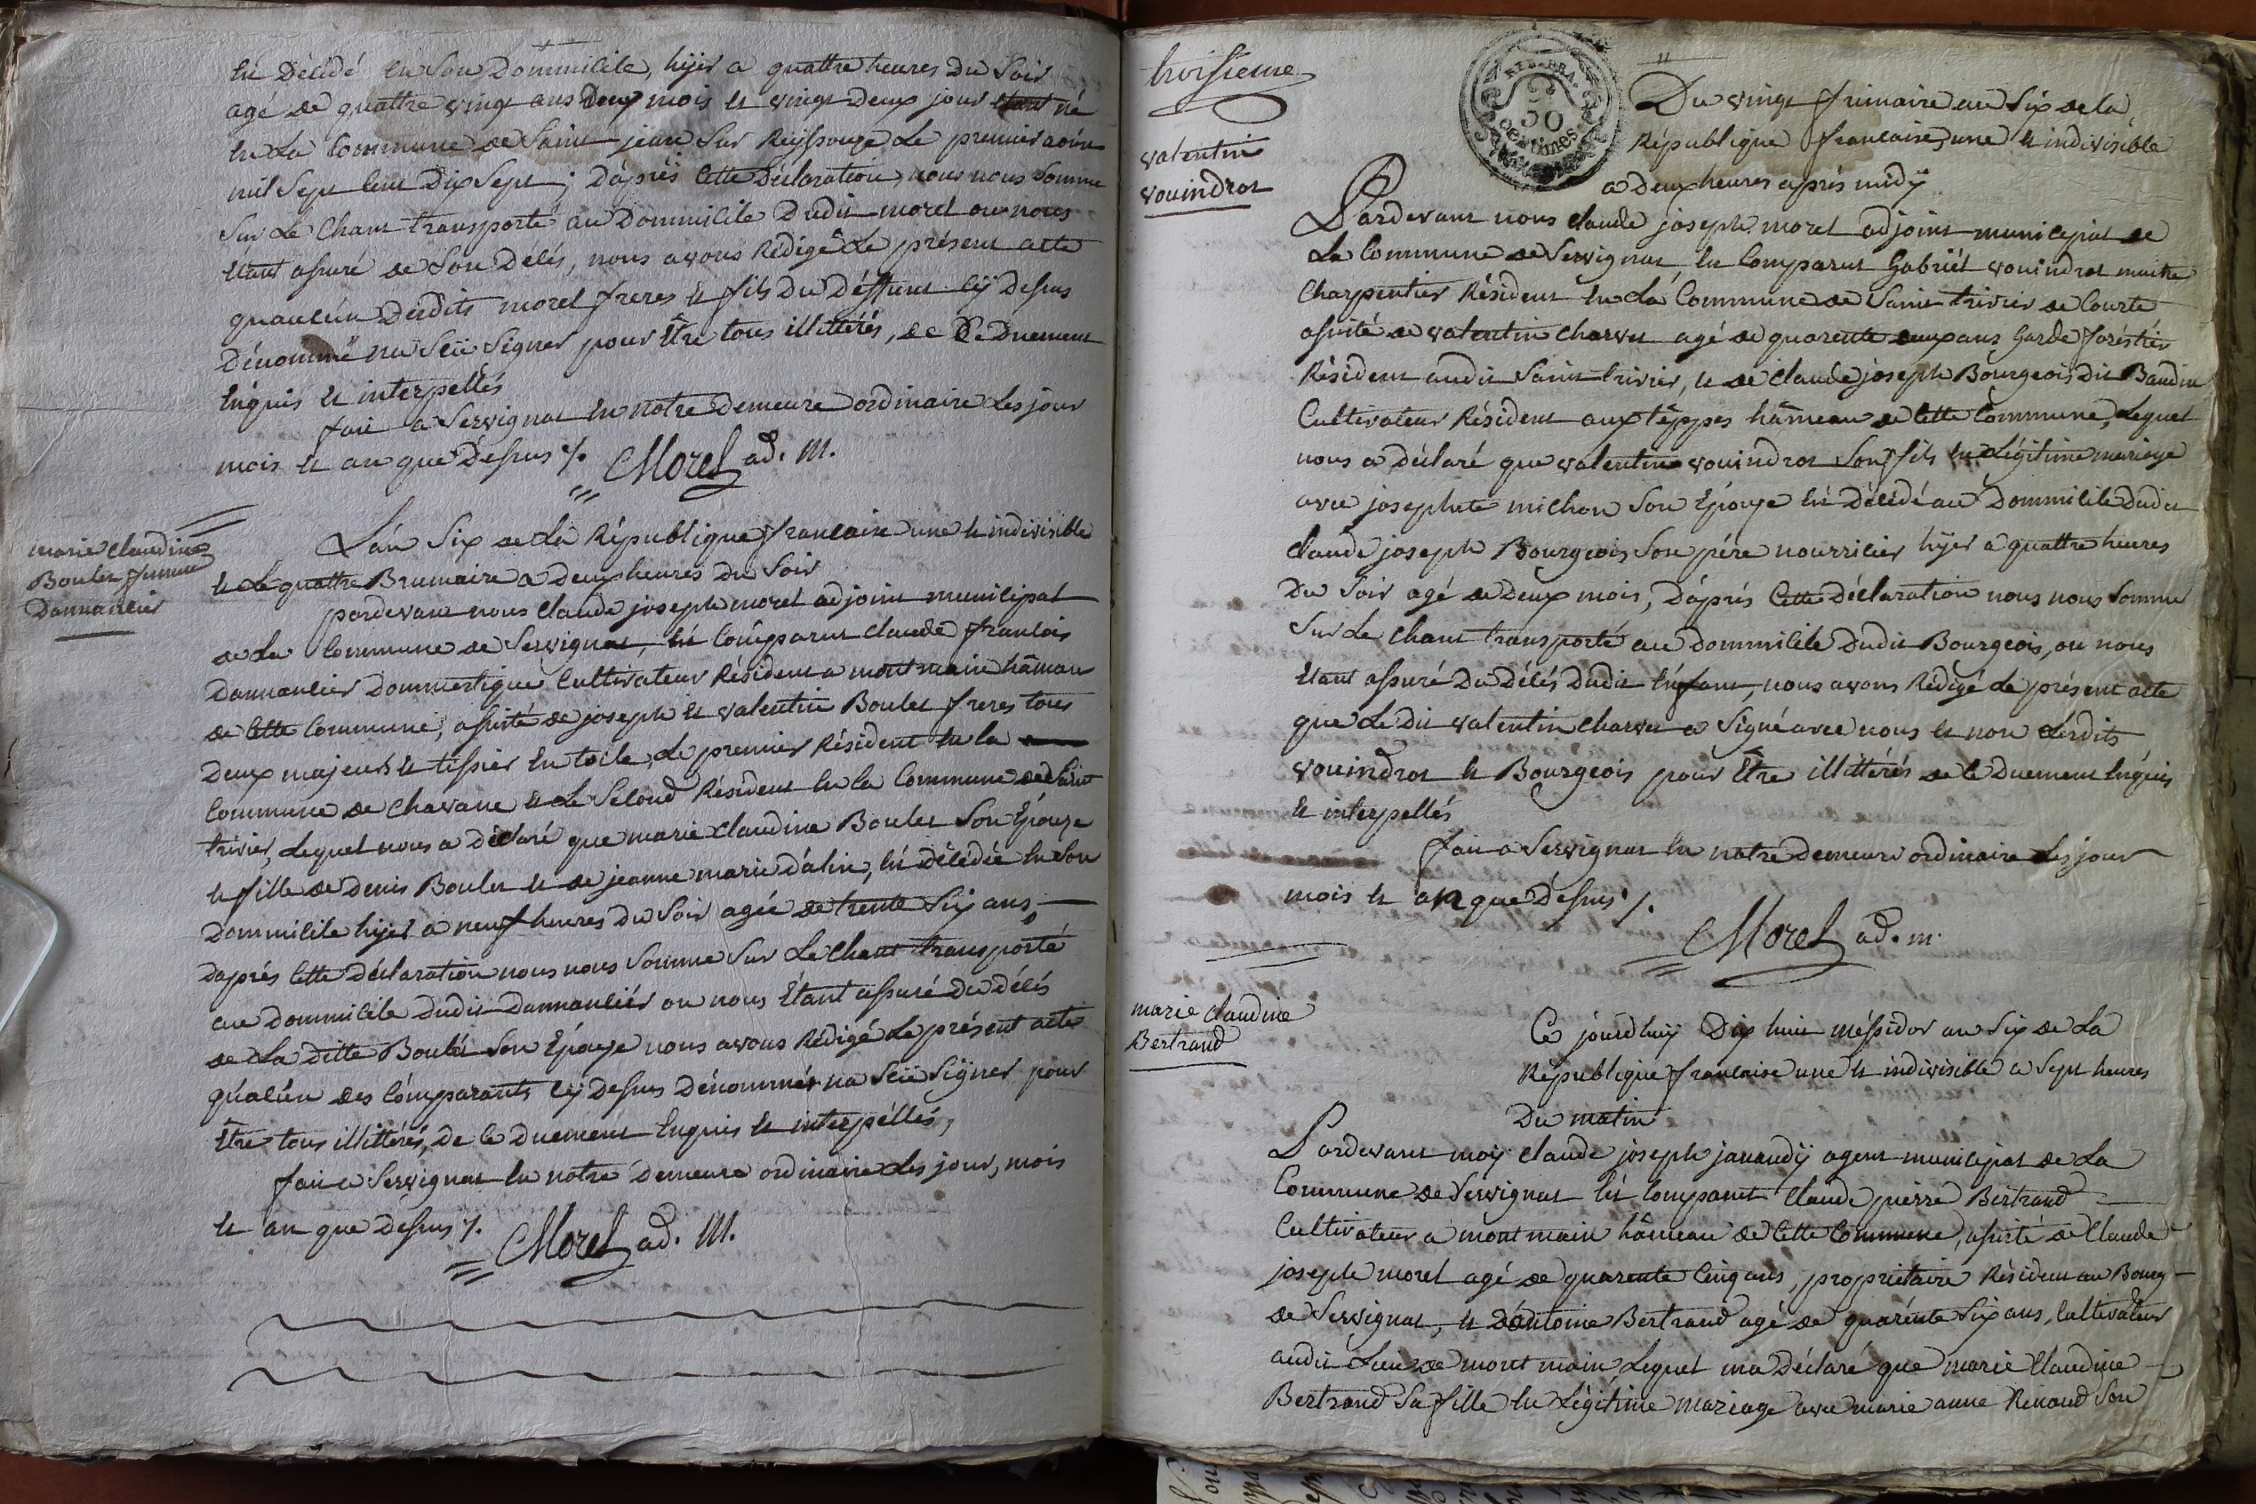 Est Décédé en Son Dommicile, hijer a quattre heures du Soir
agé de quattre vingt ans deux mois et vingt deux jour étant né
en La Commune de Saint jean Sur Reyssouze Le premier aoûst
mil Sept Cent Dix Sept ; D'aprés Cette Déclaration, nous nous Somme
Sur Le Chant transporté au Dommicile Dudit morel ou nous
étant assuré de Son Décés, nous avons Rédigé Le présent acte
qu'aucun Desdits morel freres et fils Du Déffunt Cÿ Dessus
Dénommé na Sçû Signer pour Être tous illittérés, de Ce Duement
Enquis et interpellés
fait a Servignat En notre Demeure ordinaire Les jour
mois et an que Dessus ٪. Morel ad. M.
marie Claudine
Boulet femme
Dannancier
L'an Six de La République francaise une et indivisible
et Le quattre Brumaire a Deux heures du Soir
pardevant nous Claude joseph morel adjoint municipal
de La Commune de Servignat, Est Comparut Claude francois
Dannancier Dommestique Cultivateur Résident a mont main hâmau
de Cette Commune, assisté de joseph et valentin Boulet freres tous
Deux majeurs et tissier En toile, Le premier Résident En la
Commune de Chavane et Le Second Résident En la Commune de Saint
trivier, Lequel nous a déclaré que marie Claudine Boulet Son Épouze
et fille de Denis Boulet et de jeanne marie D'alin, Est Décédée En Son
Dommicile hijer a neuf heures du Soir agée de trente Six ans,
D'aprés Cette Déclaration nous nous Somme Sur Le Chant transporté
au Dommicile Dudit Dannancier ou nous Étant assuré du Décés
de La Ditte Boulet Son Épouze nous avons Rédigé Le présent acte
qu'aucun des Comparants Cÿ Dessus Dénommés na Sçû Signer pour
Être tous illittérés, de Ce Duement Enquis et interpellés,
fait a Servignat En notre Demeure ordinaire Les jour, mois
et an que Dessus ٪. Morel ad. M.
troisieme
valentin
vouindrot
REP. FRA.
50
centimes
Du vingt frimaire an Six de la
République francaise une et indivisible
a Deux heures aprés midÿ
Pardevant nous Claude joseph morel adjoint municipal de
La Commune de Servignat, Est Comparut Gabriél vouindrot maitre
Charpentier Résident En La Commune de Saint trivier de Courte
assisté de valentin Charvet agé de quarente deux ans Garde foréstier
Résident audit Saint trivier, et de Claude joseph Bourgeois dit Baudin
Cultivateur Résident aux têppes hâmeau de Cette Commune, Lequel
nous a déclaré que valentin vouindrot Son fils En Légitime mariage
avec josephete michon Son Épouze Est Décédé au Dommicile Dudit
Claude joseph Bourgeois Son pére nourricier hijer a quattre heures
Du Soir agé de Deux mois, D'aprés Cette Déclaration nous nous Somme
Sur Le Chant transporté au Dommicile Dudit Bourgeois, ou nous
Étant assuré Du Décés Dudit Enfant, nous avons Rédigé Le présent acte
que Le dit valentin Charvet a Signé avec nous et non Lesdits
vouindrot et Bourgeois pour Être illittérés de Ce Duement Enquis
et interpellés
fait a Servignat En notre demeure ordinaire Les jour
mois et an que Dessus ٪.
Morel ad. m.
marie Claudine
Bertrand
Ce jourd'huÿ Dix huit méssidor an Six de La
République francaise une et indivisible a Sept heures
Du matin
Pardevant moÿ Claude joseph janaudÿ agent municipal de La
Commune de Servignat Est Comparut Claude pierre Bertrand
Cultivateur a mont main hâmeau de Cette Commune, assisté de Claude
joseph morel agé de quarente Cinq ans, propriétaire Résident au Bourg
de Servignat, et D'antoine Bertrand agé de quarénte Six ans, Cultivateur
audit Lieu de mont main Lequel ma Déclaré que marie Claudine
Bertrand Sa fille En Légitime mariage avec marie anne Renaud Son